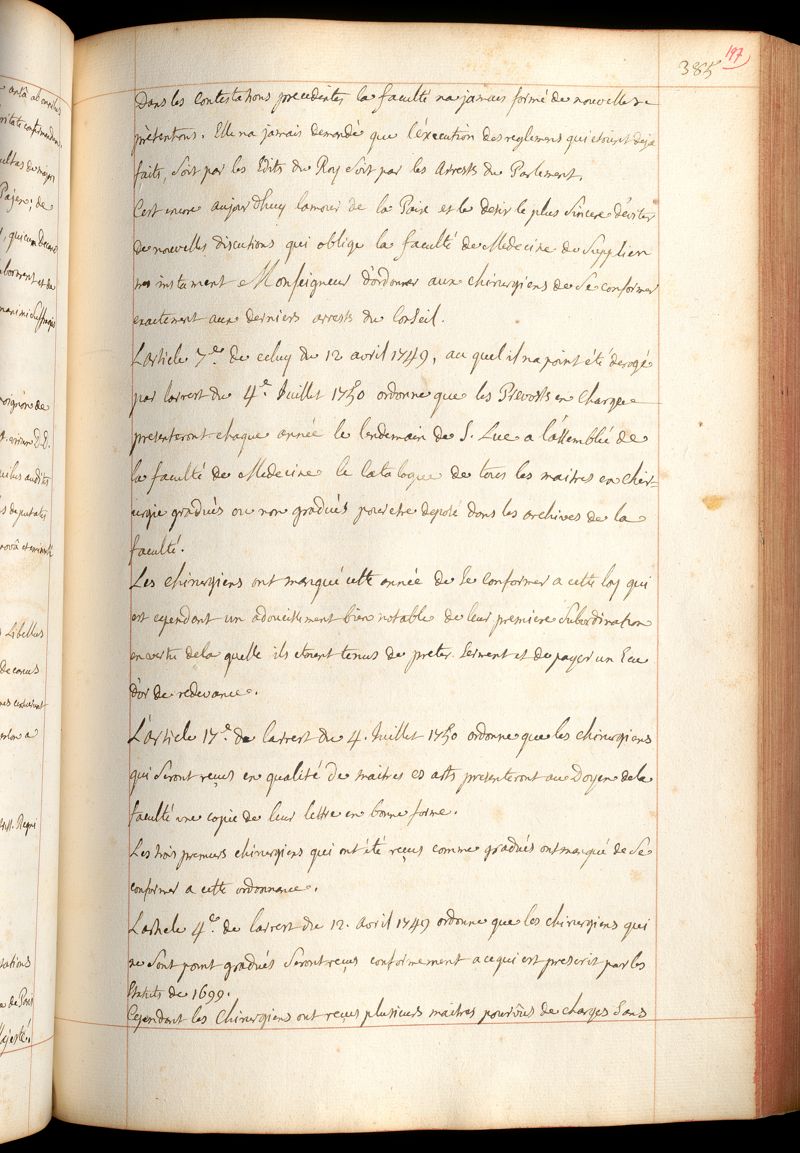 197
385
Dans les contestations precedentes la faculté na jamais formé de nouvelles
prétentions. Elle na jamais demandé que l'éxecution des reglemens qui etoient deja
faits, soit par les Edits du Roy soit par les Arrests du Parlement.
C'est encore aujourdhuy lamour de la Paix et le desir le plus sincere d'éviter
de nouvelles discutions qui oblige la faculté de Medecine de supplier
tres instament Monseigneur d'ordonner aux chirurgiens de se conformer
exactement aux derniers arrests du Conseil.
L'article 7.e de celuy du 12 avril 1749, au quel il na point été derogé
par larrert du 4.e Juillet 1750 ordonne que les Prevosts en charge
presenteront chaque année le lendemain de S. Luc a l'assemblée de
la faculté de Medecine le Catalogue de tous les maitres en chir-
urgie gradués ou non gradués pour etre deposé dans les archives de la
faculté.
Les chirurgiens ont manqué cette année de se conformer a cette loy qui
est cependant un adoucissement bien notable de leur premiere subordination
en vertu de la quelle ils etoient tenus de preter serment et de payer un Ecu
d'or de redevance.
L'article 17.e de larrert du 4. Juillet 1750 ordonne que les chirurgiens
qui seront reçus en qualité de maitres es arts presenteront au Doyen de la
faculté une copie de leur lettre en bonne forme.
Les trois premiers chirurgiens qui ont été reçus comme gradués ont manqué de se
conformer a cette ordonnance.
L'article 4.e de larrert du 12. avril 1749 ordonne que les chirurgiens qui
ne sont point gradués seront reçus conformement a ce qui est prescrit par les
statuts de 1699.
Cependant les Chirurgiens ont reçus plusieurs maitres pourvûs de charges sans